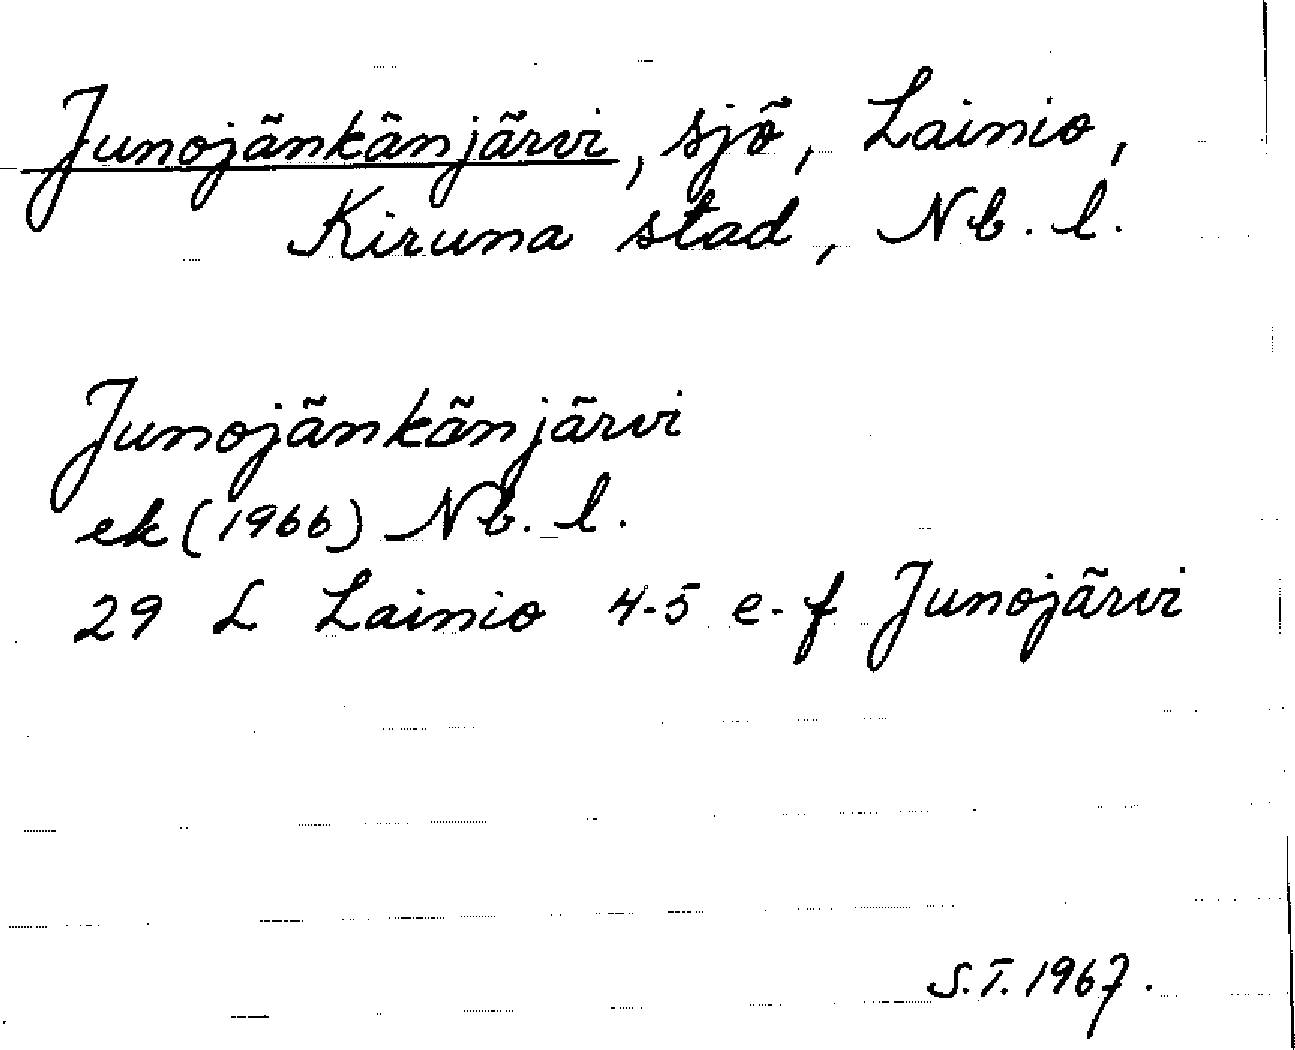 Junojänkänjärvi, sjö, Lainio,
Kiruna stad, Nb. l.
Junojänkänjärvi
ek (1966) Nb. l.
29 L Lainio 4-5 e-f Junojärvi
S.T. 1967.